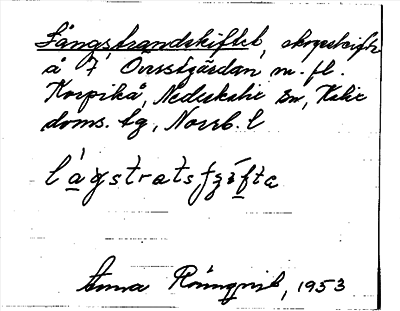 Långstrandskiftet, skogsskifte
å 7 Overstgärdan m. fl.
Korpikå, Nederkalix sn, Kalix
doms. tg, Norrb. l
lågstratsfzífta
Anna Rönnqvist, 1953